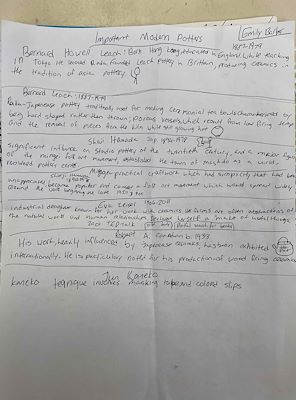 Important Modern Potters
Bernard Howell Leach: Both Hong Kong, educated in England. While teaching
1887-1979
in Tokyo He learned Raku. Founded Leach pottery in Britain, producing ceramics in
the tradition of asian pottery
Bernard Leach: 1887-1979
Raku-Japanese pottery traditionally used for making ceremonial tea bowls characterized by
being hand shaped rather than thrown; porous vessels, which result from low firing temps
and the removal of pieces from the kiln while still glowing hot
Shoji Hamada 1894-1978
significant influence on studio pottery of the twentieth century, and a major figure
of the mingei folk art movement, established the town of mashiko as a world
renowned pottery centre
Mingei practical craftwork which had simplicity that had been
unappreciated, became popular and a folk art movement which would spread widely
around the world beginning the late 1920's
Eva Zeisel 1906-2011
industrial designer known for her work with ceramics. Her forms are often abstractions of
the natural world and human relationships. Declared herself a "maker of useful things"
2001 TED talk
Robert A. b. 1933
His work, heavily influenced by Japanese ceramics, has been exhibited
internationally. He is particulary noted for his production of wood firing ceramics
Jun Kaneko
kaneko teqnique involves masking tape and colored slips